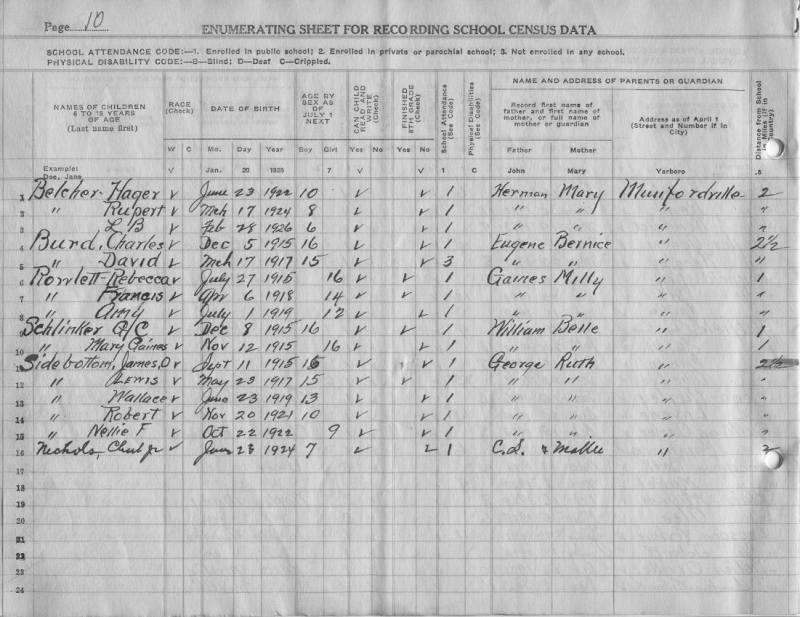 Page 10
ENUMERATING SHEET FOR RECORDING SCHOOL CENSUS DATA
SCHOOL ATTENDANCE CODE:—1. Enrolled in public school; 2. Enrolled in private or parochial school; 3. Not enrolled in any school.
PHYSICAL DISABILITY CODE:—B—Blind; D—Deaf C—Crippled.
NAMES OF CHILDREN 6 TO 18 YEARS OF AGE (Last name first) RACE (Check) DATE OF BIRTH AGE BY SEX AS OF JULY 1 NEXT CAN CHILD READ AND WRITE (Check) FINISHED 8TH GRADE (Check) School Attendance (See Code) Physical Disabilities (See Code) NAME AND ADDRESS OF PARENTS OR GUARDIAN Distance from School in Miles (if in Country)
Record first name of father and first name of mother, or full name of mother or guardian Address as of April 1 (Street and Number if in City)
W C Mo. Day Year Boy Girl Yes No Yes No Father Mother
Example: Doe, Jane V Jan. 20 1925 7 V V 1 C John Mary Yarboro .5
1 Belcher Hager v June 23 1922 10 v v 1 Herman Mary Munfordville 2
2 " Rupert v Mch 17 1924 8 v v 1 " " " "
3 L B v Feb 28 1926 6 v v 1 " " " "
4 Burd, Charles v Dec 5 1915 16 v v 1 Eugene Bernice " 2½
5 " David v Mch 17 1917 15 v v 3 " " " "
6 Rowlett Rebecca v July 27 1915 16 v v 1 Gaines Milly " 1
7 " Francis v Apr 6 1918 14 v v 1 " " " "
8 " Amy v July 1 1919 12 v v 1 " " " "
9 Schlinker v Dec 8 1915 16 v v 1 William Belle " 1
10 " Mary Gaines v Nov 12 1915 16 v v 1 " " " 1
11 Sidebottom, James, O v Sept 11 1915 16 v v 1 George Ruth " 2½
12 " Lewis v May 23 1917 15 v v 1 " " " "
13 " Wallace v June 23 1919 13 v v 1 " " " "
14 " Robert v Nov 20 1921 10 v v 1 " " " "
15 " Nellie F v Oct 22 1922 9 v v 1 " " " "
16 Nichols, Jr v 28 1924 7 v v 1 C.S. & Mollie " 2
17
18
19
20
21
22
23
24